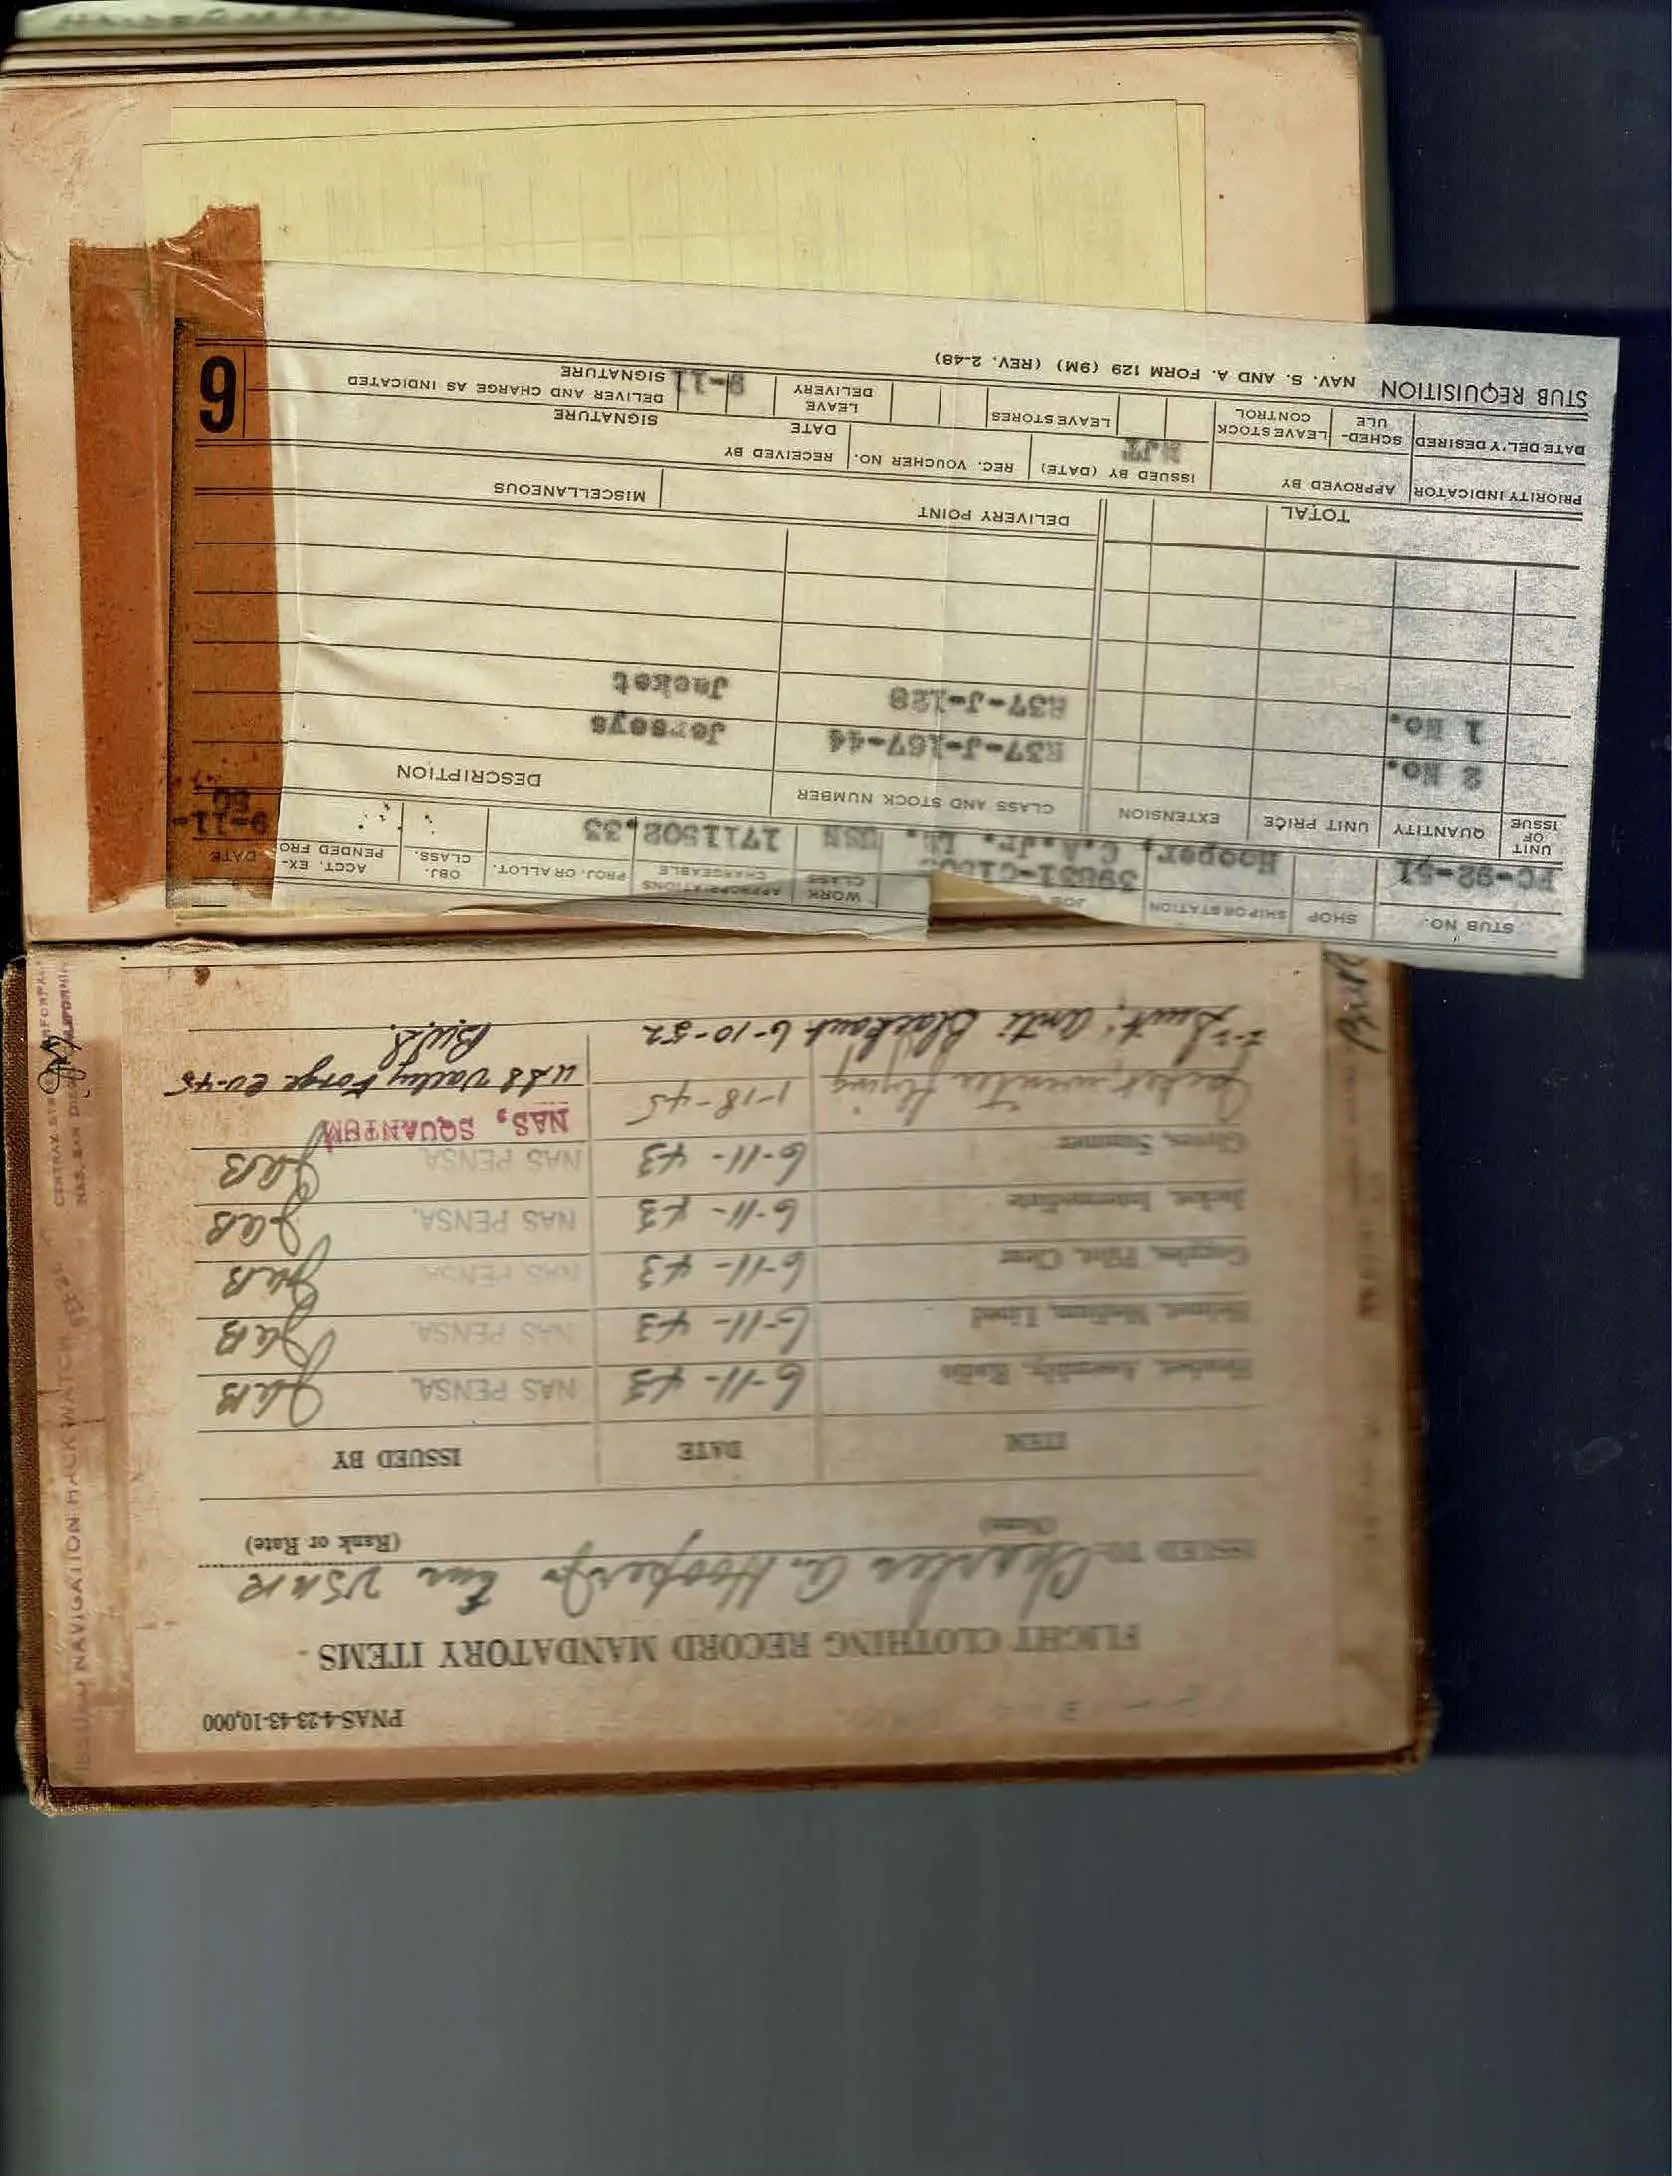 PNAS-4-23-43-10,000
FLIGHT CLOTHING RECORD MANDATORY ITEMS
ISSUED TO Charles A. Hooper Jr Ens USNR
(Name) (Rank or Rate)
ITEM DATE ISSUED BY
Headset, Assembly, Radio 6-11-43 NAS PENSA. JAB
Helmet, Medium, Lined 6-11-43 NAS PENSA. JAB
Goggles, Pilot, Clear 6-11-43 NAS PENSA. JAB
Jacket, Intermediate 6-11-43 NAS PENSA. JAB
Gloves, Summer 6-11-43 NAS PENSA. JAB
Jacket, winter flying 1-18-45 NAS, SQUANTUM
Suit, Anti Blackout 6-10-52 USS Valley Forge CV-45
ISSUED NAVIGATION HACK WATCH
STUB NO. SHOP SHIP OR STATION WORK CLASS APPROPRIATIONS CHARGEABLE PROJ. OR ALLOT. OBJ. CLASS. ACCT. EXPENDED FRO DATE
PC-92-51 Hooper, C.A.Jr. Lt. USN 1711502.33 9-11-
UNIT OF ISSUE QUANTITY UNIT PRICE EXTENSION CLASS AND STOCK NUMBER DESCRIPTION
2 No. R37-J-167-44 Jerseys
1 No. R37-J-128 Jacket
TOTAL DELIVERY POINT MISCELLANEOUS
PRIORITY INDICATOR APPROVED BY ISSUED BY (DATE) REC. VOUCHER NO. RECEIVED BY
DATE SIGNATURE
DATE DEL'Y DESIRED SCHED-ULE LEAVE STOCK CONTROL LEAVE STORES LEAVE DELIVERY 9-11 DELIVER AND CHARGE AS INDICATED
SIGNATURE
STUB REQUISITION NAV. S. AND A. FORM 129 (9M) (REV. 2-48)
9